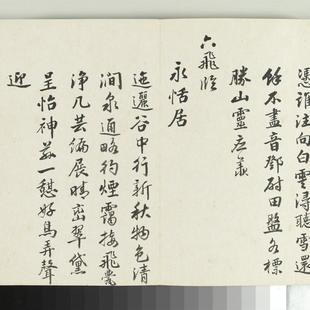 憑誰注向白雲浔聽雪還
餘不盡音鄧尉田盤各標
勝山靈應羨
六飛臨
永恬居
迤邐谷中行新秋物色清
澗泉通略彴煙靄接飛甍
浄几芸編展晴巒翠黛
呈怡神茲一憩好鳥弄聲
迎